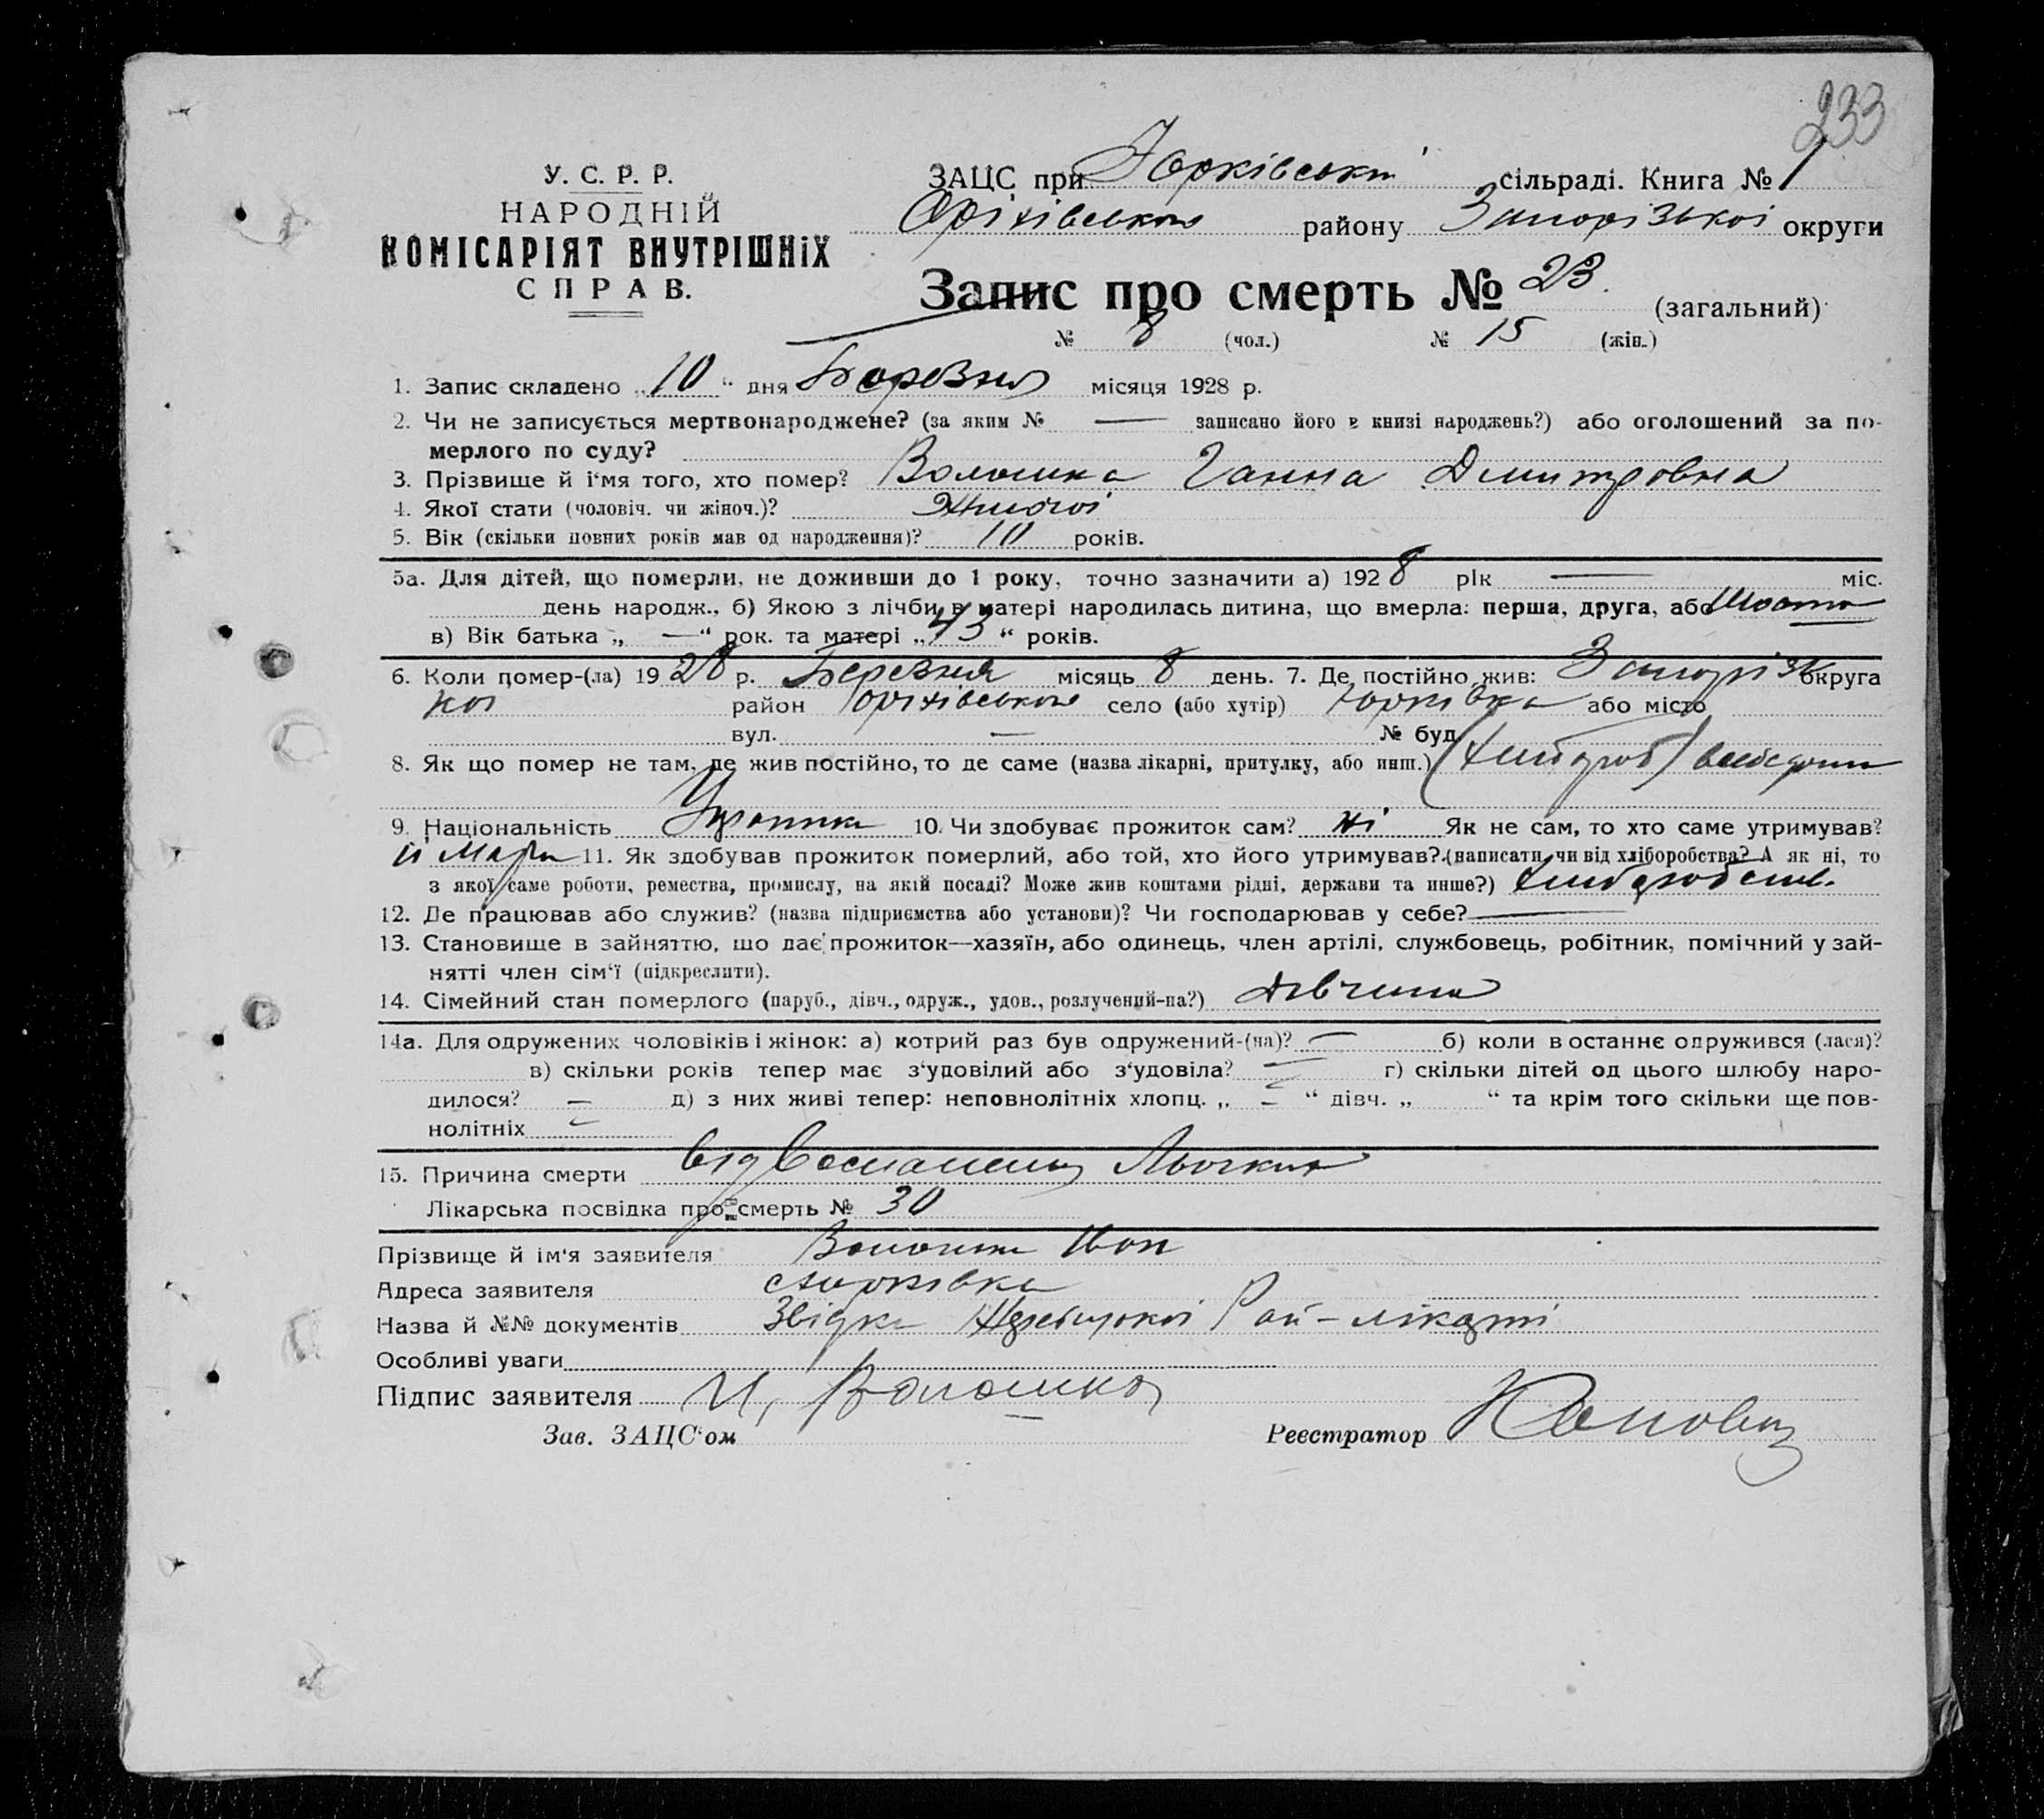 233
У. С. Р. Р.
НАРОДНІЙ
КОМІСАРІЯТ ВНУТРІШНіХ
СПРАВ.
ЗАЦС при Юрківській сільраді. Книга № 1
Оріхівського району Запорізької округи
Запис про смерть № 23. (загальний)
№ 8 (чол.) № 15 (жін.)
1. Запис складено „10“ дня Березня місяця 1928 р.
2. Чи не записується мертвонароджене? (за яким № — записано його в книзі народжень?) або оголошений за по-
мерлого по суду?
3. Прізвище й і‘мя того, хто помер? Волошка Ганна Дмитровна
4. Якої стати (чоловіч. чи жіноч.)? Жіночої
5. Вік (скільки повних років мав од народження)? 10 років.
5а. Для дітей, що померли, не доживши до 1 року, точно зазначити а) 1928 рік — міс.
день народж., б) Якою з лічби в матері народилась дитина, що вмерла: перша, друга, або шоста
в) Вік батька „ — “ рок. та матері „43“ років.
6. Коли помер-(ла) 1928 р. Березня місяць 8 день. 7. Де постійно жив: Запоріз округа
кої район Оріхівського село (або хутір) Юрківка або місто
вул. — № буд.
8. Як що помер не там, де жив постійно, то де саме (назва лікарні, притулку, або инш.)
9. Національність Українка 10. Чи здобуває прожиток сам? ні Як не сам, то хто саме утримував?
11. Як здобував прожиток померлий, або той, хто його утримував? (написати, чи від хліборобства? А як ні, то
з якої саме роботи, ремества, промислу, на якій посаді? Може жив коштами рідні, держави та инше?) хліборобств.
12. Де працював або служив? (назва підприємства або установи)? Чи господарював у себе? —
13. Становище в зайняттю, що дає прожиток—хазяїн, або одинець, член артілі, службовець, робітник, помічний у зай-
нятті член сім‘ї (підкреслити).
14. Сімейний стан померлого (паруб., дівч., одруж., удов., розлучений-на?) Дівчина
14а. Для одружених чоловіків і жінок: а) котрий раз був одружений-(на)? — б) коли в останнє одружився (лася)?
в) скільки років тепер має з‘удовілий або з‘удовіла? — г) скільки дітей од цього шлюбу наро-
дилося? — д) з них живі тепер: неповнолітніх хлопц. „ — “ дівч. „ “ та крім того скільки ще пов-
нолітніх —
15. Причина смерти від
Лікарська посвідка про смерть № 30
Прізвище й ім'я заявителя Волошка Іван
Адреса заявителя с Юрківка
Назва й №№ документів Звідка Рай-лікарні
Особливі уваги
Підпис заявителя И, Волошка
Зав. ЗАЦС‘ом Реєстратор